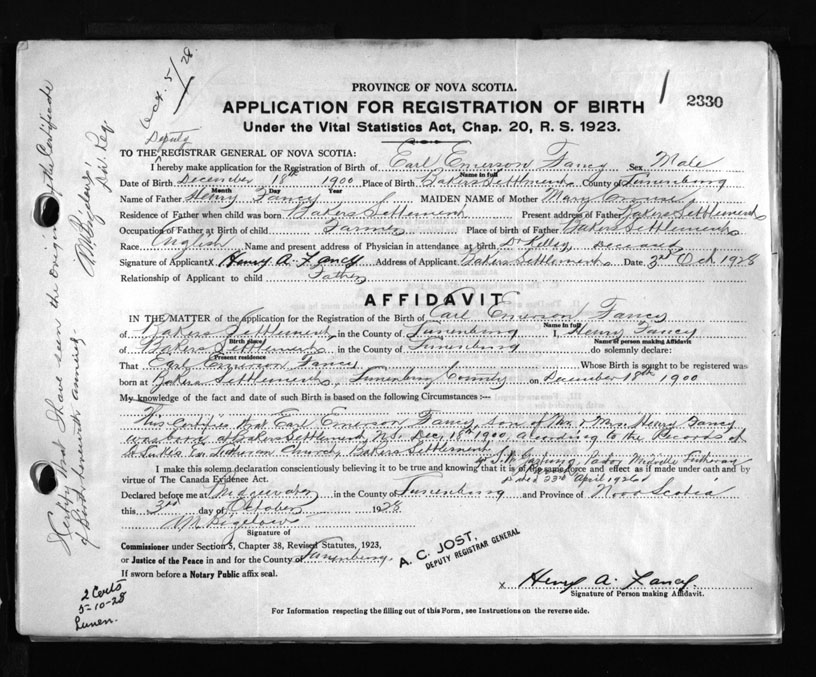 Oct. 5/28
PROVINCE OF NOVA SCOTIA.
2330
APPLICATION FOR REGISTRATION OF BIRTH
Under the Vital Statistics Act, Chap. 20, R. S. 1923.
Deputy
TO THE REGISTRAR GENERAL OF NOVA SCOTIA:
I hereby make application for the Registration of Birth of Earl Emerson Fancy Sex Male
Name in full
Date of Birth December 18th 1900 Place of Birth Bakers Settlement County of Lunenburg
Month Day Year
Name of Father Henry Fancy MAIDEN NAME of Mother Mary
Residence of Father when child was born Bakers Settlement Present address of Father Bakers Settlement
Occupation of Father at Birth of child Farmer Place of birth of Father Bakers Settlement
Race English Name and present address of Physician in attendance at birth Dr Kelley deceased
Signature of Applicant X Henry A. Fancy Address of Applicant Bakers Settlement Date 3rd Oct 1928
Relationship of Applicant to child Father
AFFIDAVIT
IN THE MATTER of the application for the Registration of the Birth of Earl Emerson Fancy
Name in full
of Bakers Settlement, in the County of Lunenburg I, Henry Fancy
Birth place Name of person making Affidavit
of Bakers Settlement in the County of Lunenburg do solemnly declare:
Present residence
That Earl Emerson Fancy Whose Birth is sought to be registered was
born at Bakers Settlement, Lunenburg County on December 18th 1900
My knowledge of the fact and date of such Birth is based on the following Circumstances :—
This Certifies that Earl Emerson Fancy, son of Mr & Mrs Henry Fancy
was born at Bakers Settlement N.S. Dec. 18th 1900, according to the Records of
St Lukes Ev. Lutheran Church, Bakers Settlement
Pastor Midville Lutheran
I make this solemn declaration conscientiously believing it to be true and knowing that it is of the same force and effect as if made under oath and by
virtue of The Canada Evidence Act.
Dated 23rd April 1926
Declared before me at in the County of Lunenburg and Province of Nova Scotia
this 3rd day of October 1928
W M Bigelow
Signature of
Commissioner under Section 5, Chapter 38, Revised Statutes, 1923,
or Justice of the Peace in and for the County of Lunenburg
If sworn before a Notary Public affix seal.
A. C. JOST,
DEPUTY REGISTRAR GENERAL
x Henry A. Fancy
Signature of Person making Affidavit.
For Information respecting the filling out of this Form, see Instructions on the reverse side.
I certify that I have seen the Original of the Certificate
of Birth herewith
W M Bigelow
Div. Reg.
2 Certs
5-10-28
Lunen.